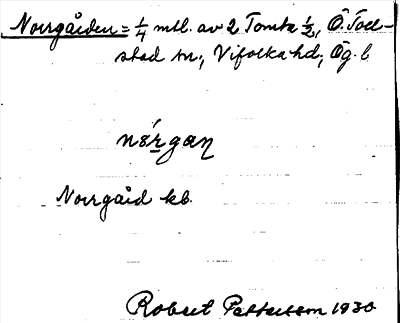 Norrgården = 1/4 mtl. av 2 Tomta 1/2, Ö. Toll-
stad sn, Vifolka hd, Ög. l.
Norrgård kb.
Robert Pettersson 1930